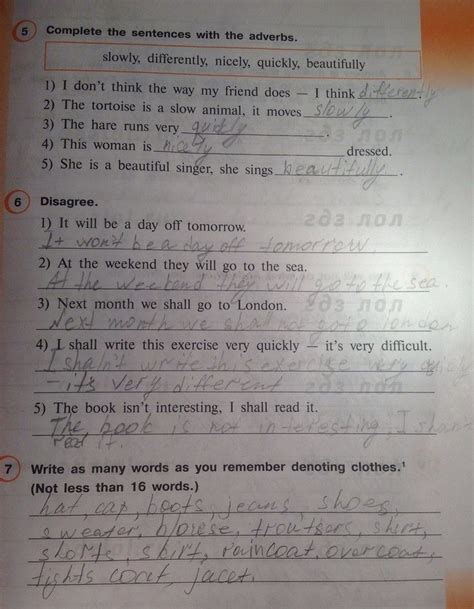 5 Complete the sentences with the adverbs.
slowly, differently, nicely, quickly, beautifully
1) I don't think the way my friend does — I think differently
2) The tortoise is a slow animal, it moves slowly.
3) The hare runs very quickly.
4) This woman is nicely dressed.
5) She is a beautiful singer, she sings beautifully.
6 Disagree.
1) It will be a day off tomorrow.
It won't be a day off tomorrow.
2) At the weekend they will go to the sea.
At the weekend they will go to the sea.
3) Next month we shall go to London.
Next month we shall not go to london
4) I shall write this exercise very quickly — it's very difficult.
I shaln't write this exercise very quickly
- it's very different
5) The book isn't interesting, I shall read it.
The book is not interesting, I shan't
read it.
7 Write as many words as you remember denoting clothes.¹
(Not less than 16 words.)
hat, cap, boots, jeans, shoes,
sweater, troutsers, shirt,
shorts, skirt, raincoat, overcoat,
tights coret, jacet.